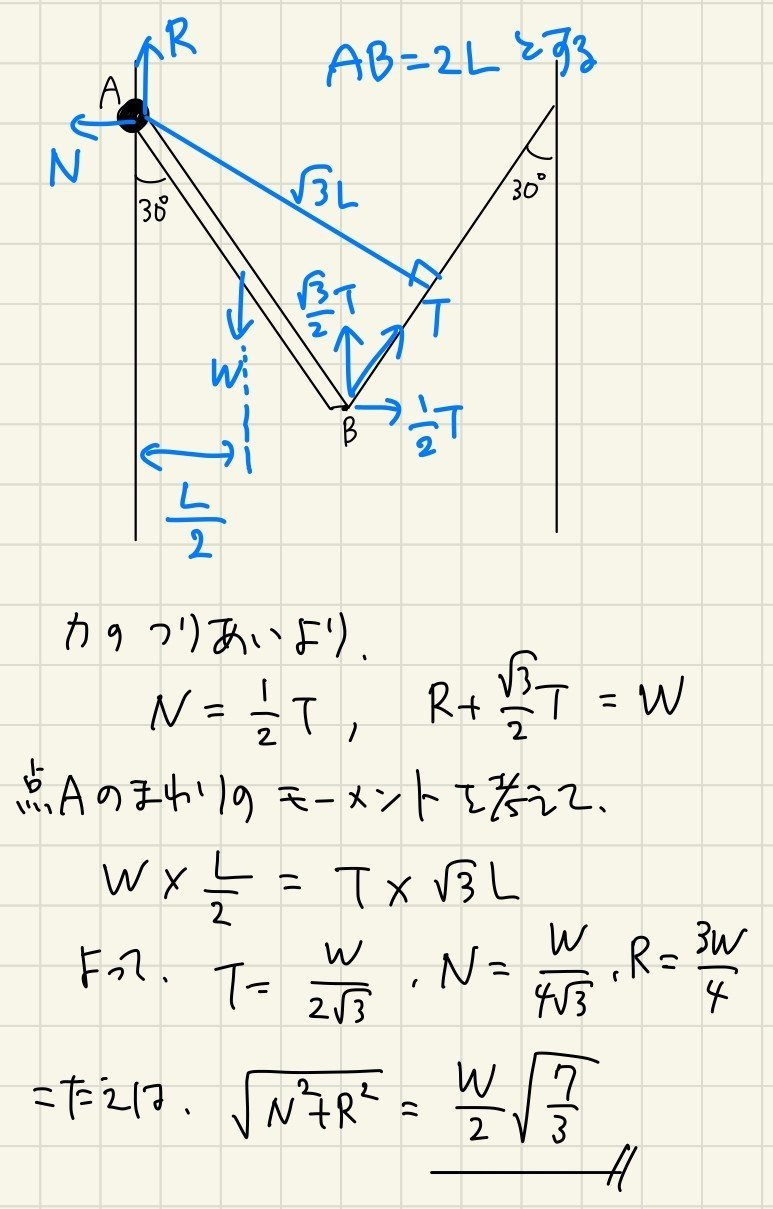 R
AB=2L とする
A
N
30°
√3L
30°
√3/2 T
T
W
B
1/2 T
L/2
力のつりあいより.
N = 1/2 T , R + √3/2 T = W
点Aのまわりのモーメントを考えて.
W × L/2 = T × √3 L
よって. T = W/2√3 . N = W/4√3 . R = 3W/4
こたえは. √N²+R² = W/2 √7/3